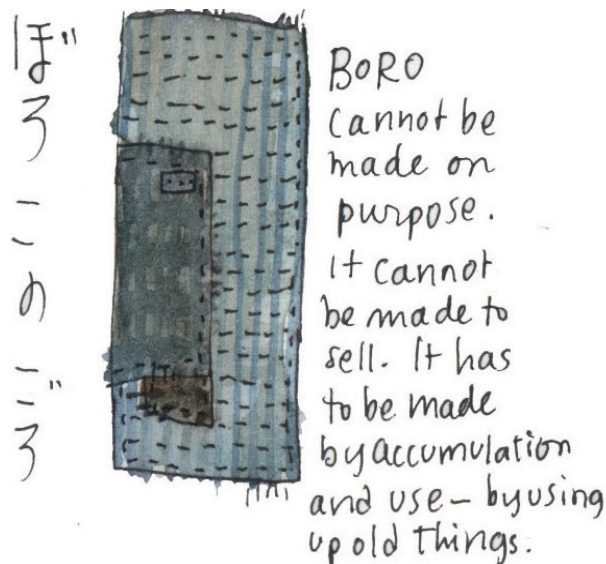 ぼろこのごろ
BORO
cannot be
made on
purpose.
It cannot
be made to
sell. It has
to be made
by accumulation
and use – by using
up old things.